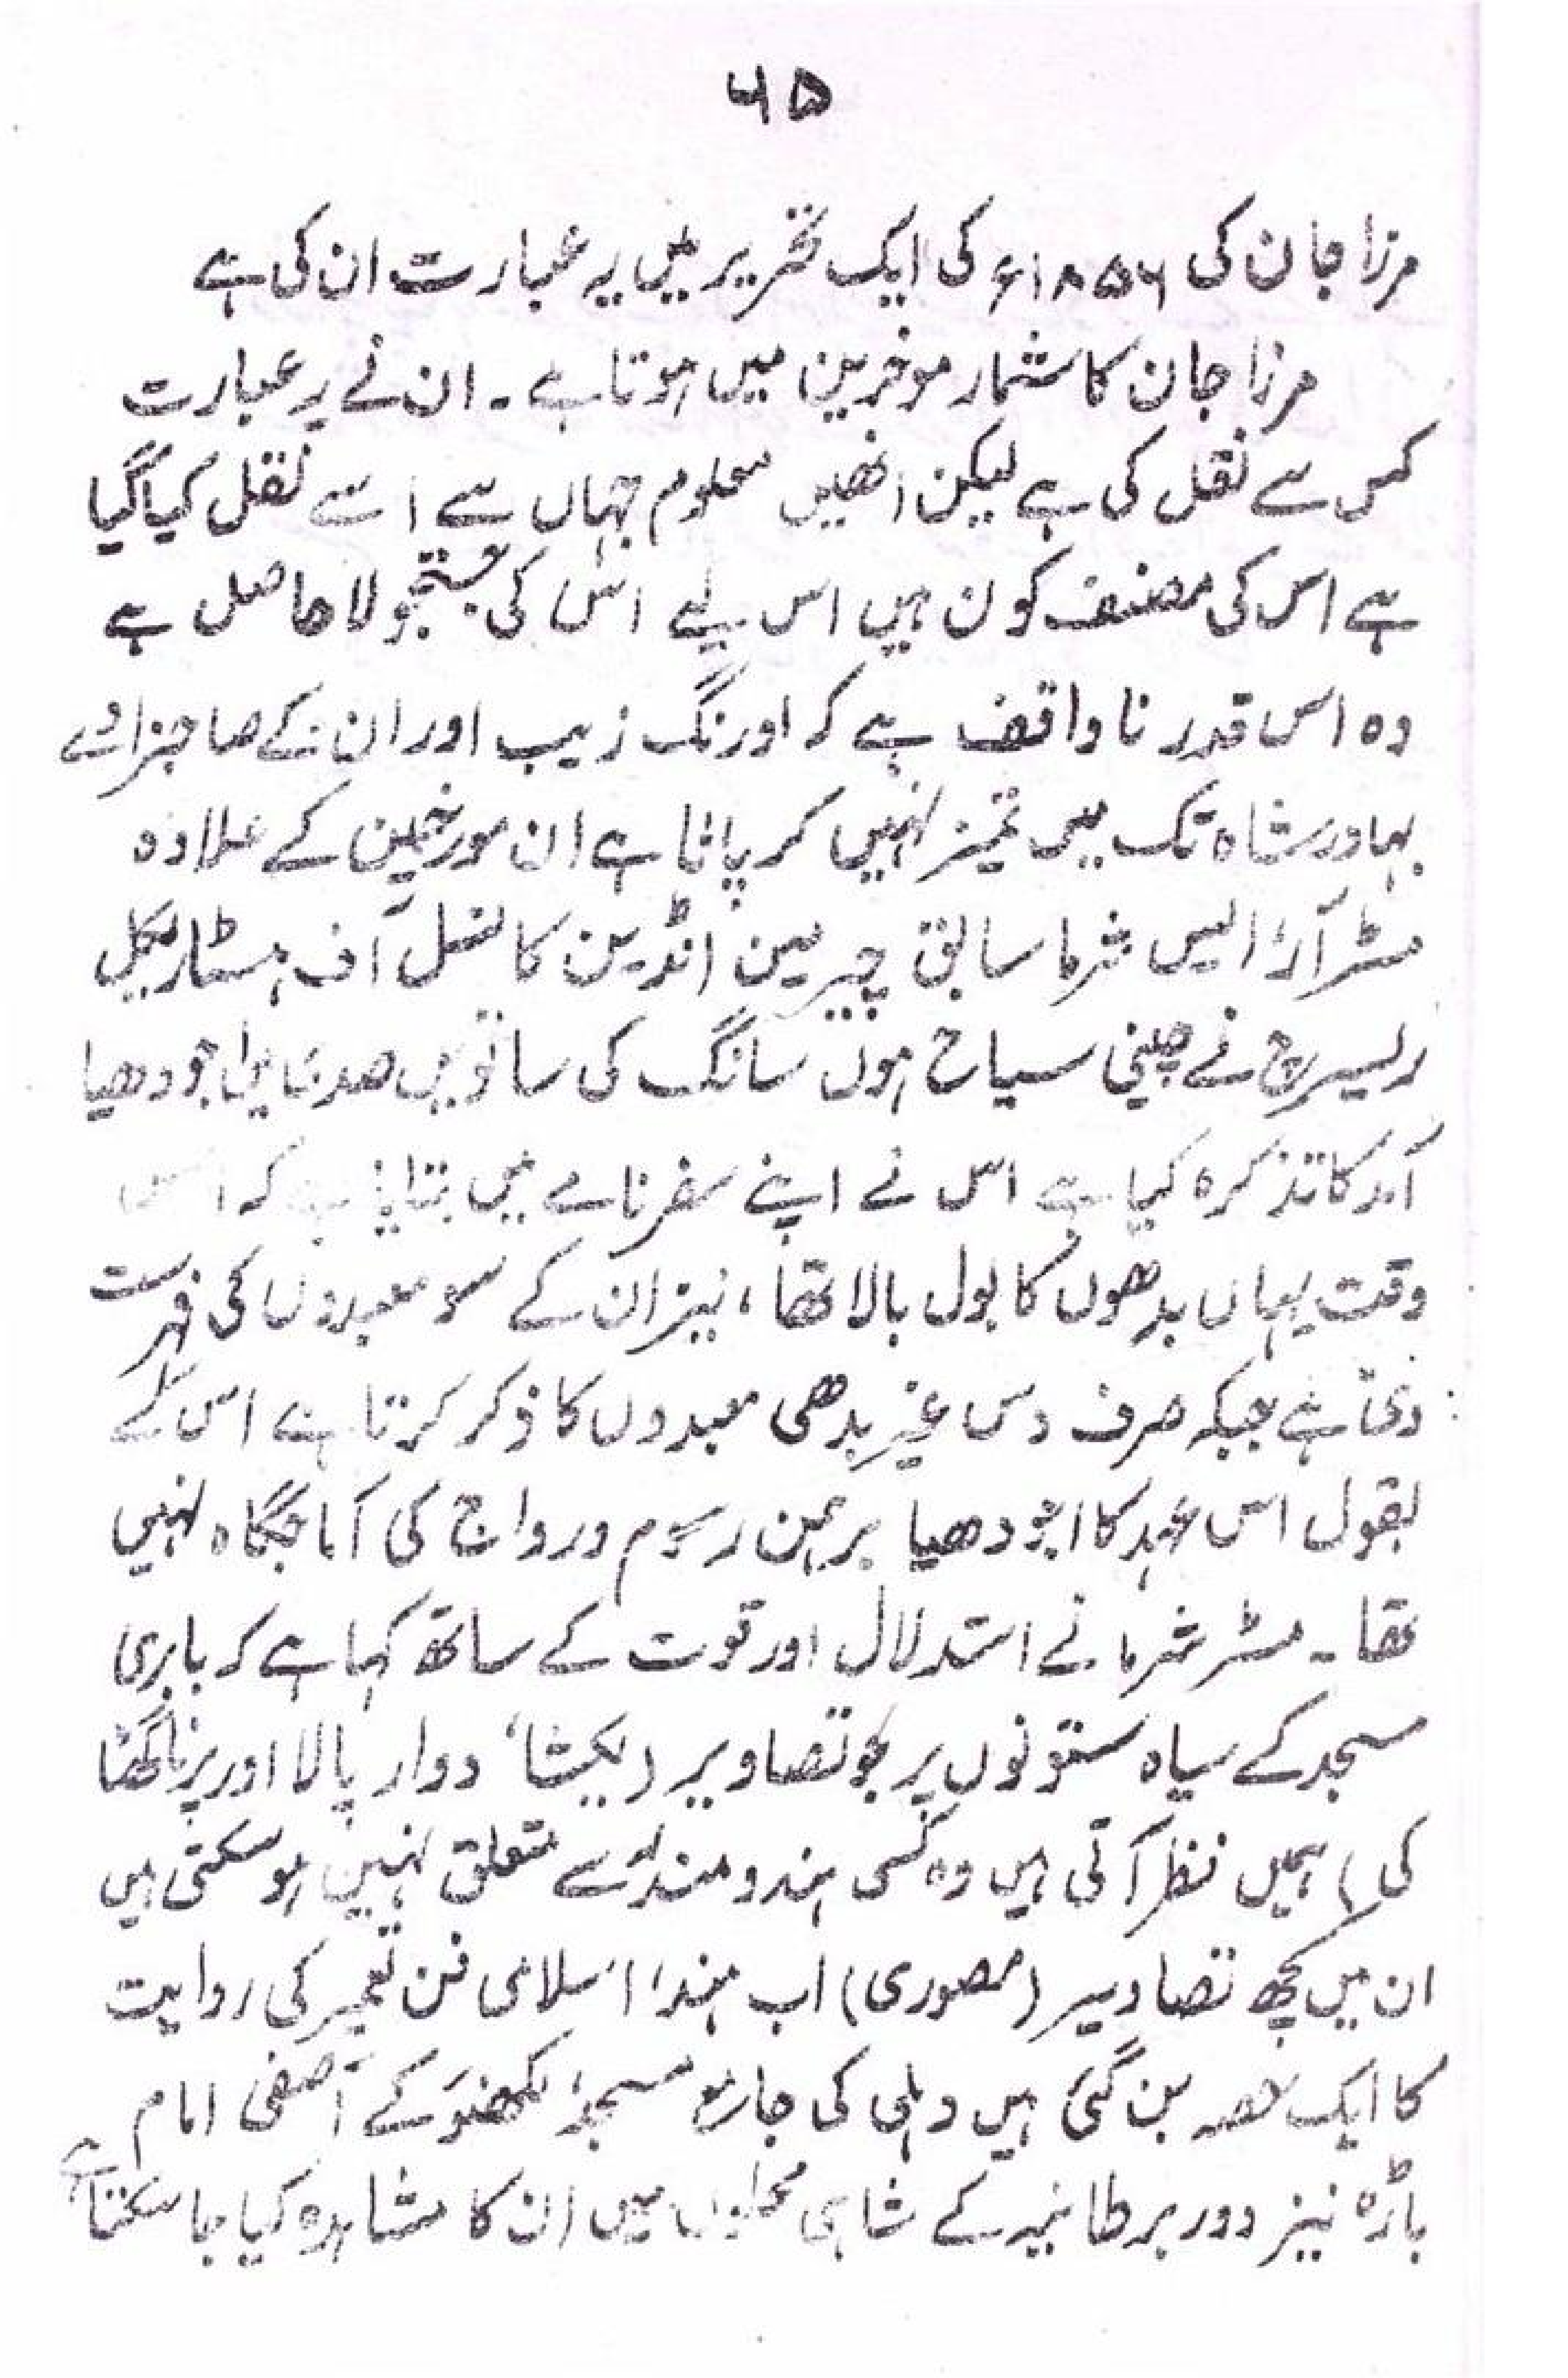 ۶۵
مرزا جان کی ۱۸۵۶ء کی ایک تحریر میں یہ عبارت ان کی ہے
مرزا جان کا شمار موخرین میں ہوتا ہے۔ ان نے یہ عبارت
کس سے نقل کی ہے لیکن انھیں معلوم جہاں سے اسے نقل کیا گیا
ہے اس کی مصنف کون ہیں اس لیے اس کی جستجو لا حاصل ہے
وہ اس قدر ناواقف ہے کہ اورنگ زیب اور ان کے صاحبزادے
بہادر شاہ تک میں تمیز نہیں کر پاتا ہے ان مورخین کے علاوہ
مسٹر آر ایس شرما سابق چیرمین انڈین کانسل آف ہسٹاریکل
ریسرچ نے چینی سیاح ہون سانگ کی ساتویں صدی میں اجودھیا
آمد کا تذکرہ کیا ہے اس نے اپنے سفرنامے میں بتایا ہے کہ
وقت یہاں بدھوں کا بول بالا تھا، نیز ان کے سو معبدوں کی فہرست
دی ہے جبکہ صرف دس غیر بدھی معبدوں کا ذکر کرتا ہے اس کے
بقول اس عہد کا اجودھیا برہمن رسوم و رواج کی آماجگاہ نہیں
تھا۔ مسٹر شرما نے استدلال اور قوت کے ساتھ کہا ہے کہ بابری
مسجد کے سیاہ ستونوں پر جو تصاویر (یکیشا، دوار پالا اور پرناگھٹا
کی) ہمیں نظر آتی ہیں وہ کسی ہندو مندر سے متعلق نہیں ہو سکتی ہیں
ان میں کچھ تصاویر (مصوری) اب ہند اسلامی فن تعمیر کی روایت
کا ایک حصہ بن گئی ہیں دہلی کی جامع مسجد، لکھنؤ کے آصفی امام
باڑہ نیز دور برطانیہ کے شاہی محلوں میں ان کا مشاہدہ کیا جا سکتا ہے